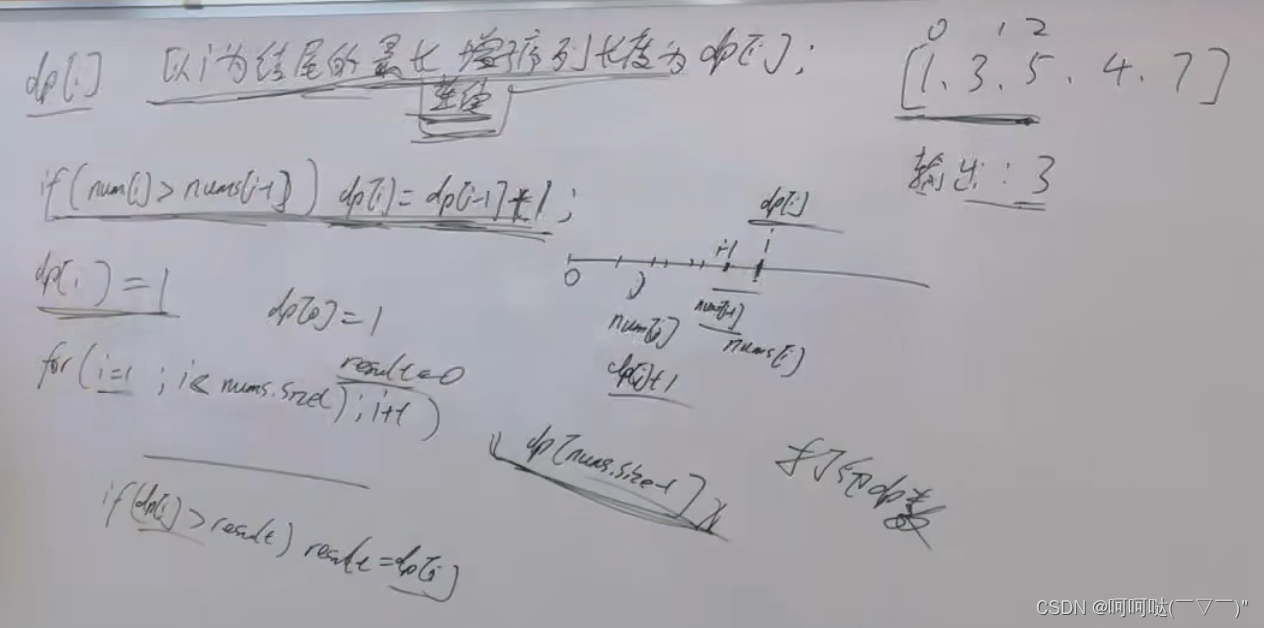 dp[i] 以i为结尾的最长增子序列长度为dp[i];
连续
0 1 2
[1、3、5、4、7]
输出:3
if(num[i]>nums[i-1]) dp[i]=dp[i-1]+1;
dp[i]
i-1 i
0 j
nums[i-1]
num[j] nums[i]
dp[j]+1
dp[i]=1
dp[0]=1
result=0
for(i=1;i<nums.size();i++)
dp[nums.size-1]
打印dp
if(dp[i]>result) result=dp[i]
CSDN @呵呵哒(￣▽￣)"